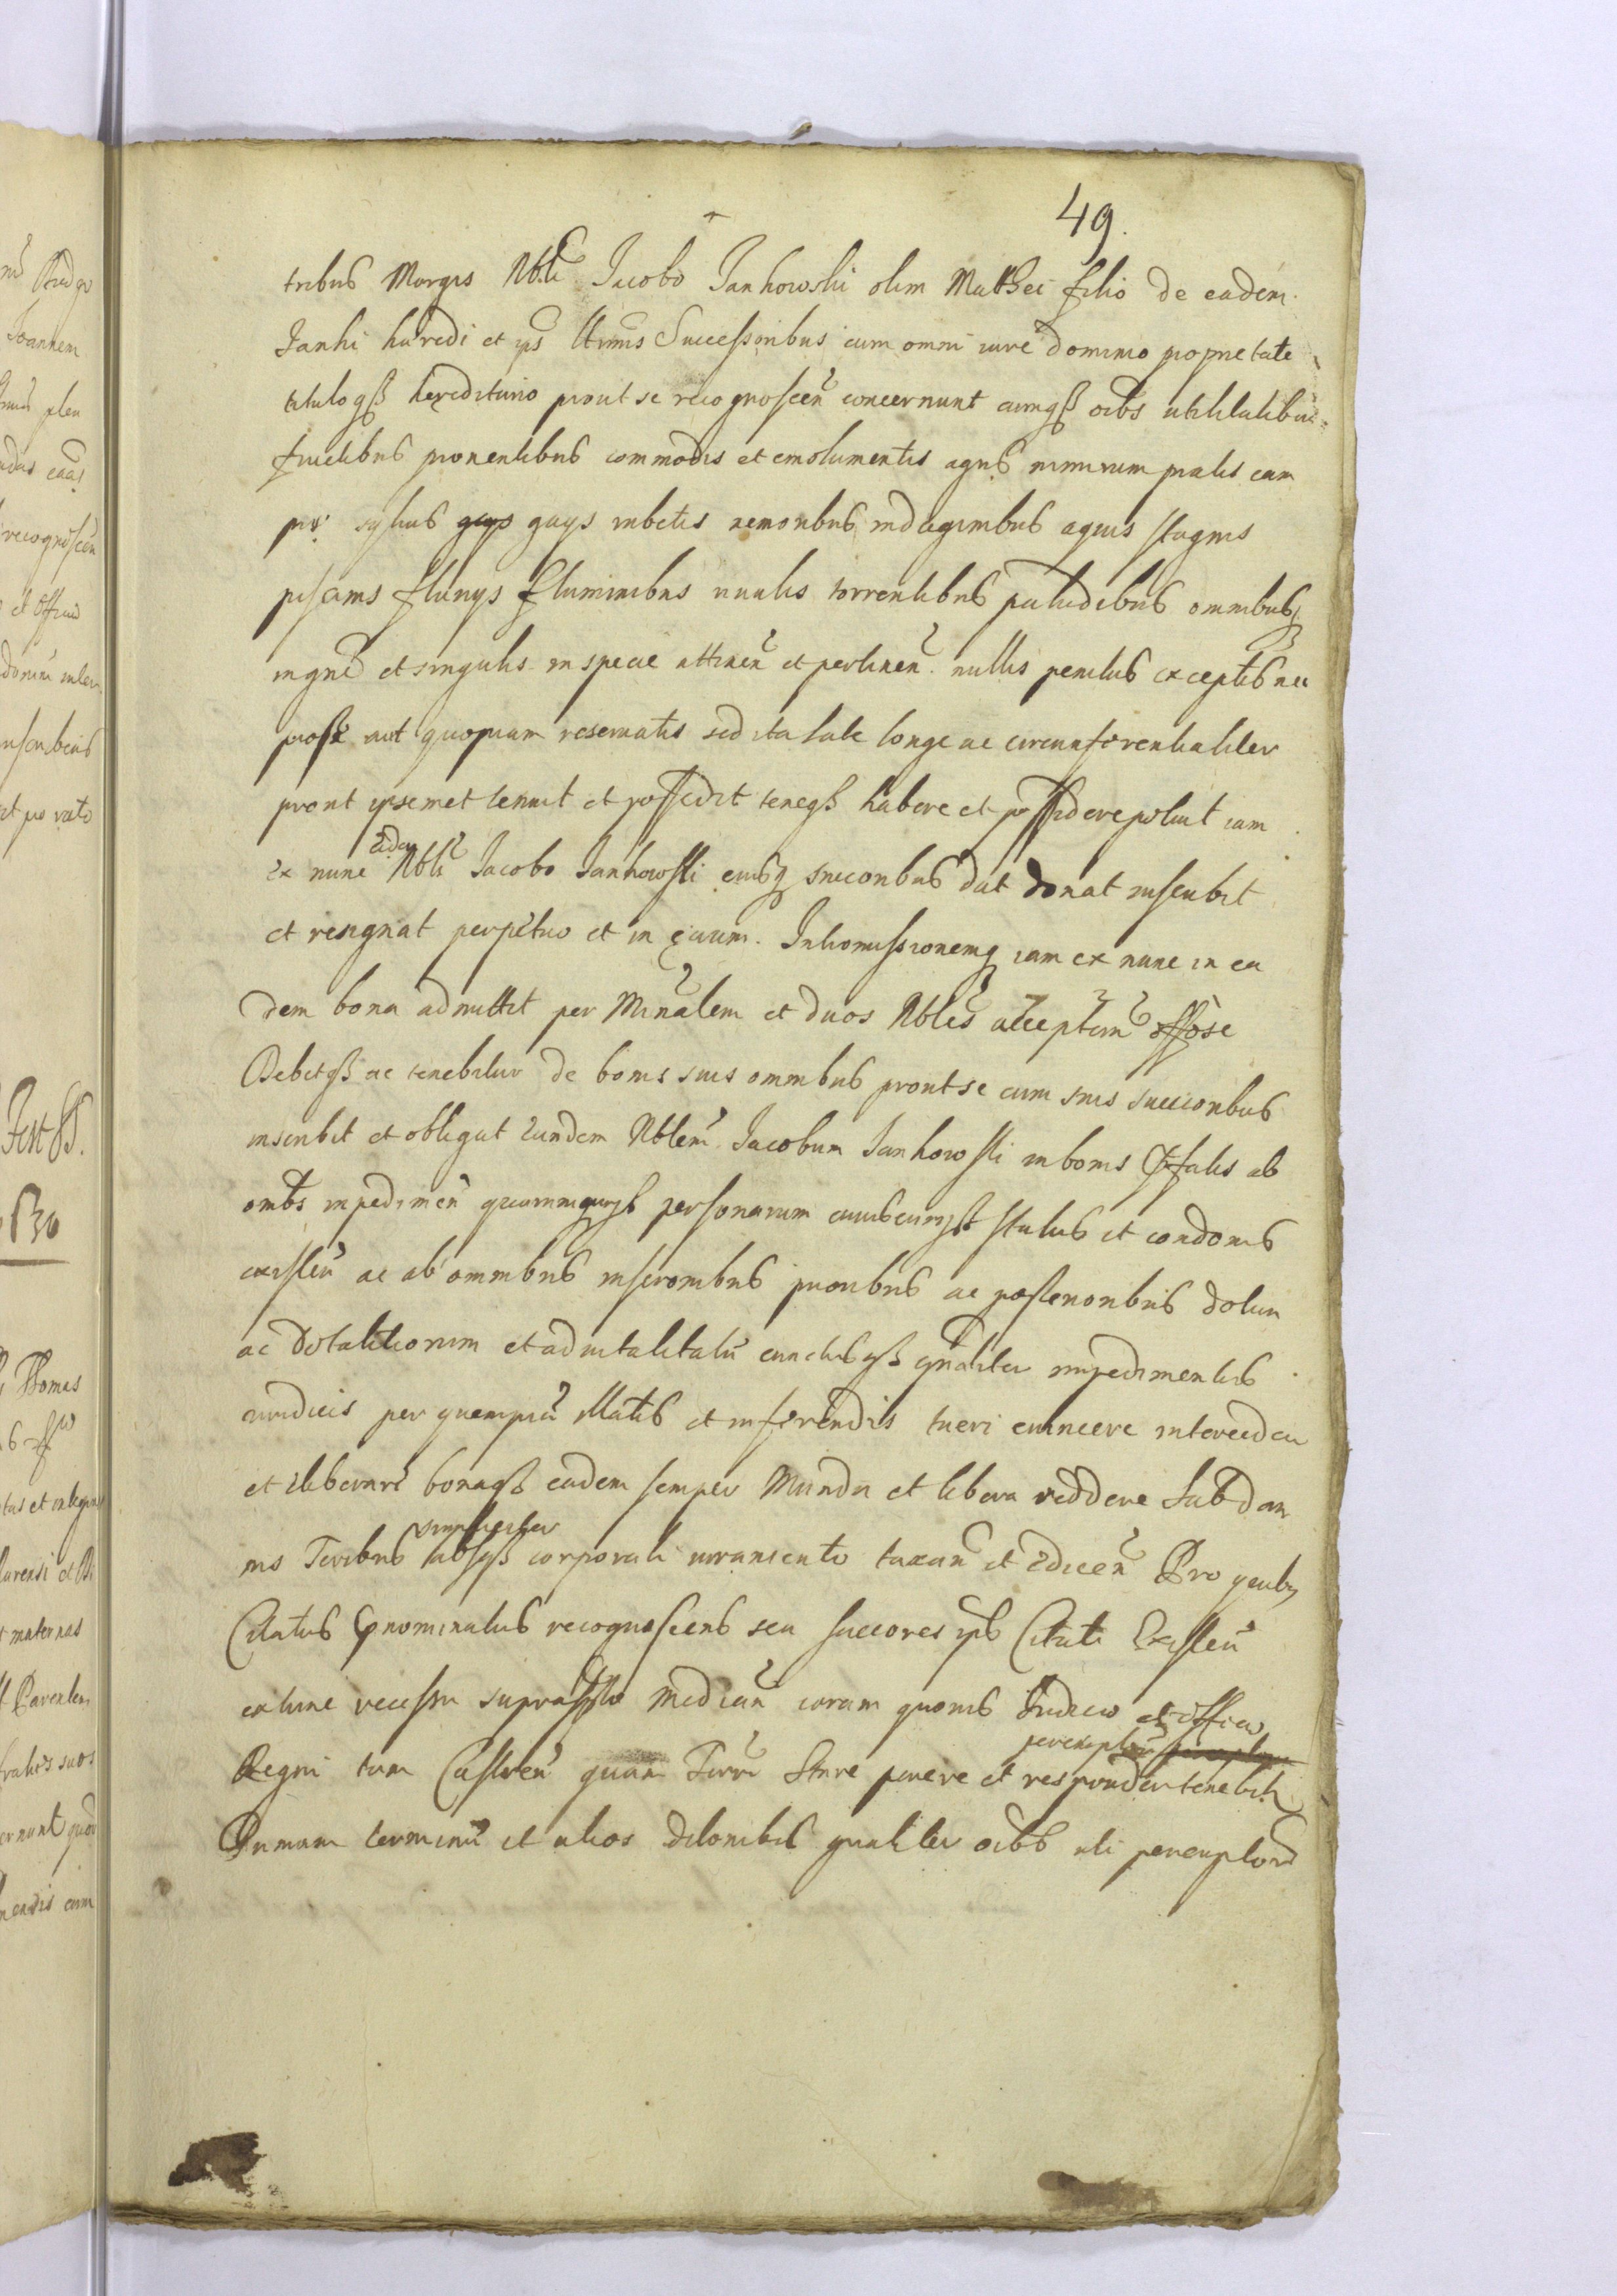 49.
tribus Morgis Nbli Jacobo Jankowski olim Mathei filio de eadem
Janki haeredi et ips ltimis Successoribus cum omni iure dominio proprietate
tituloqz hereditario prout se recognoscen concernunt cumqz oibs utilitatibus
fructibus proventibus commodis et emolumentis agris nimirum pratis cam
pis sylvis gays rubetis nemoribus indaginibus aquis stagnis
piscinis fluvys fluminibus rivulis torrentibus paludibus omnibusq
in gne et singulis in specie attinen et pertinen nullis penitus exceptis nec
pro se aut quopiam reservatis sed ita late longe ac circumferentialiter
prout ipsemet tenuit et possidit seneqz habere et possidere potuit iam
ex nunc eidem Nbli Jacobo Jankowski eiusq succoribus dat donat inscribit
et resignat perpetuo et in evum. Intromissionemq iam ex nunc in ea
dem bona admittit per Minalem et duos Nbles acceptim offose
Debetqz ac tenebitur de bonis suis omnibus prout se cum suis succoribus
inscribit et obligat eundem Nblem Jacobum Jankowski in bonis ab
ombs impedimen quarumcunqz personarum cuiuscunqz status et condonis
existen ac ab omnibus inscronibus prioribus ac posterioribus dotum
ac Dotalitiorum et advitalitatu cunctisqz gnaliter impedimentis
iuridicis per quempia illatis et inferendis tueri evincere intercedere
et eliberare bonaqz eadem semper Munda et libera reddere sub dam
nis Teribus simpliciter absqz corporali iuramento taxan et edicen Pro quibs
Citatus pnominatus recognoscens seu succores ips Citati Existen
ex tunc recessu suprassto Median coram quovis Judicio et officio
peremptorie
Regni tam Castren quam Terri Stare parere et respondere tenebit
Primum terminu et alios dilonibus gnaliter oibs uti peremptorie